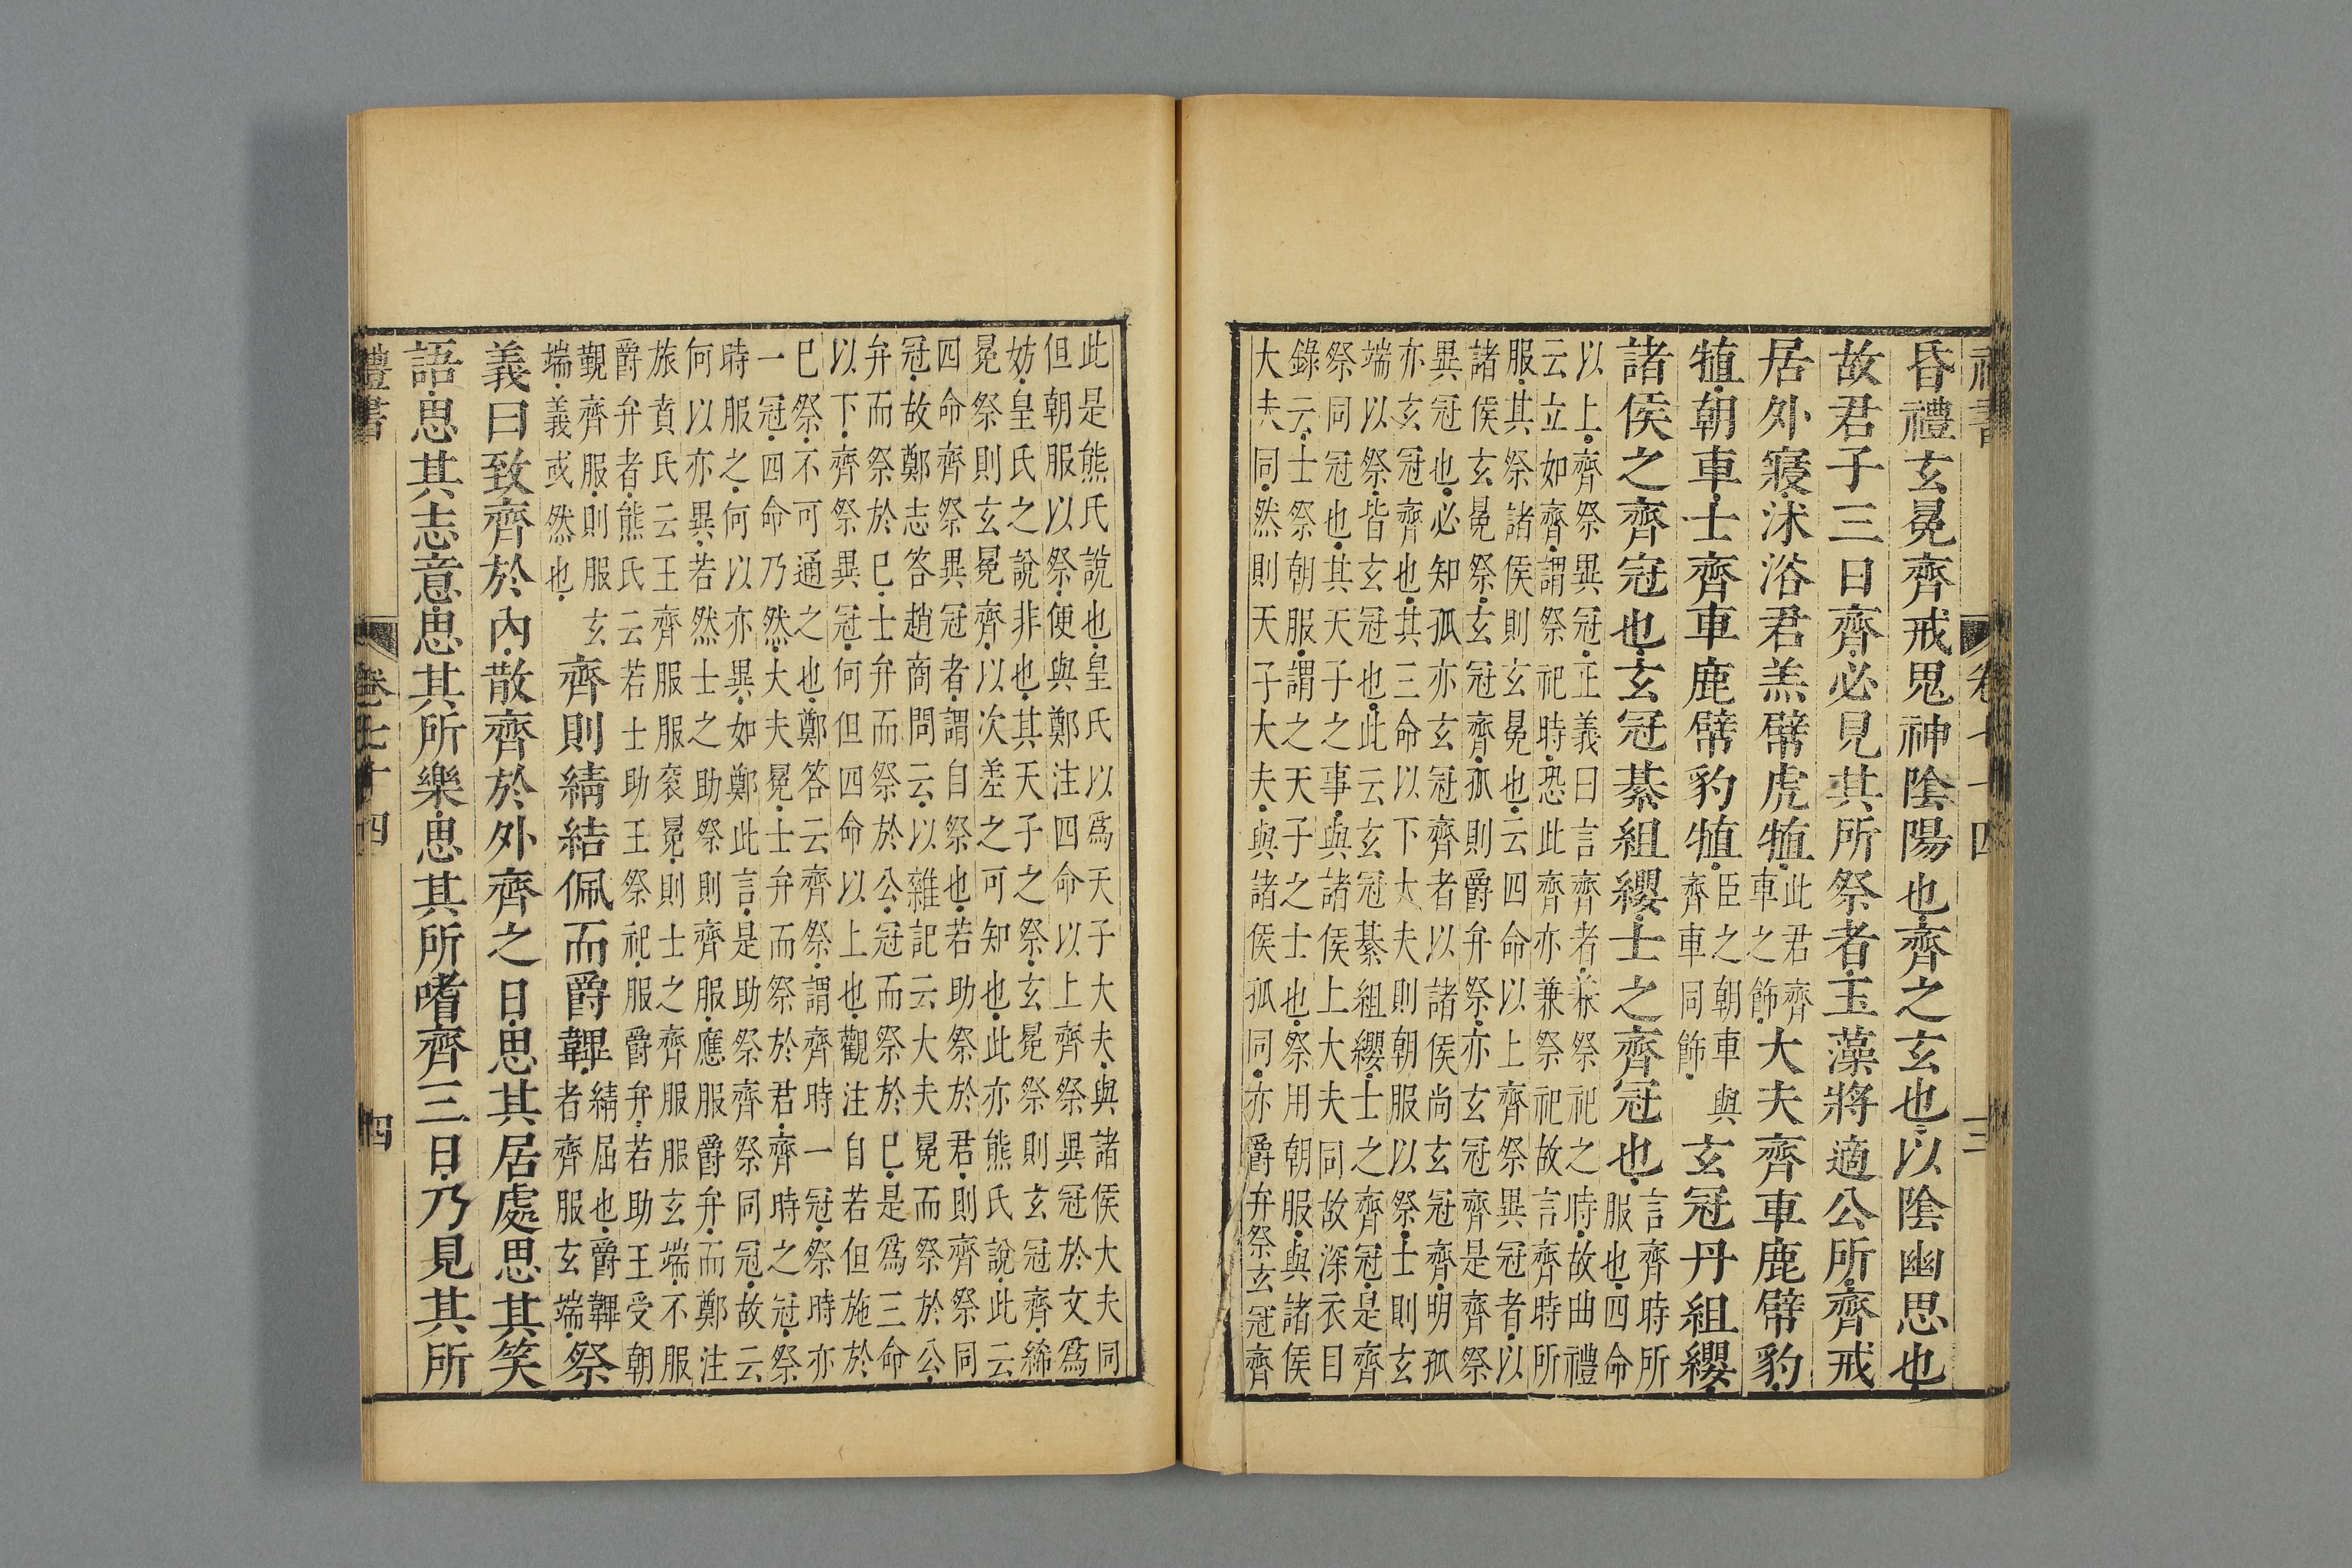 昏禮玄冕齊戒鬼神陰陽也齊之玄也以陰幽思也
故君子三日齊必見其所祭者玉藻將適公所齊戒
居外寢沐浴君羔幦虎犆此君齊車之飾大夫齊車鹿幦豹
犆朝車士齊車鹿幦豹犆臣之朝車與齊車同飾玄冠丹組纓
諸侯之齊冠也玄冠綦組纓士之齊冠也言齊時所服也四命
以上齊祭異冠正義曰言齊者兼祭祀之時故曲禮
云立如齊謂祭祀時恐此齊亦兼祭祀故言齊時所
服其祭諸侯則玄冕也云四命以上齊祭異冠者以
諸侯玄冕祭玄冠齊孤則爵弁祭亦玄冠齊是齊祭
異冠也必知孤亦玄冠齊者以諸侯尚玄冠齊明孤
亦玄冠齊也其三命以下大夫則朝服以祭士則玄
端以祭皆玄冠也此云玄冠綦組纓士之齊冠是齊
祭同冠也其天子之事與諸侯上大夫同故深衣目
錄云士祭朝服謂之天子之士也祭用朝服與諸侯
大夫同然則天子大夫與諸侯孤同亦爵弁祭玄冠齊
此是熊氏說也皇氏以爲天子大夫與諸侯大夫同
但朝服以祭便與鄭注四命以上齊祭異冠於文爲
妨皇氏之說非也其天子之祭玄冕祭則玄冠齊絺
冕祭則玄冕齊以次差之可知也此亦熊氏說此云
四命齊祭異冠者謂自祭也若助祭於君則齊祭同
冠故鄭志答趙商問云以雜記云大夫冕而祭於公
弁而祭於巳士弁而祭於公冠而祭於巳是爲三命
以下齊祭異冠何但四命以上也觀注自若但施於
巳祭不可通之也鄭答云齊祭謂齊時一冠祭時亦
一冠四命乃然大夫冕士弁而祭於君齊時之冠祭
時服之何以亦異如鄭此言是助祭齊祭同冠故云
何以亦異若然士之助祭則齊服應服爵弁而鄭注
旅賁氏云王齊服服衮冕則士之齊服服玄端不服
爵弁者熊氏云若士助王祭祀服爵弁若助王受朝
覲齊服則服玄端義或然也齊則綪結佩而爵韠綪屈也爵韠者齊服玄端祭
義曰致齊於內散齊於外齊之日思其居處思其笑
語思其志意思其所樂思其所嗜齊三日乃見其所
禮書
卷七十四
四